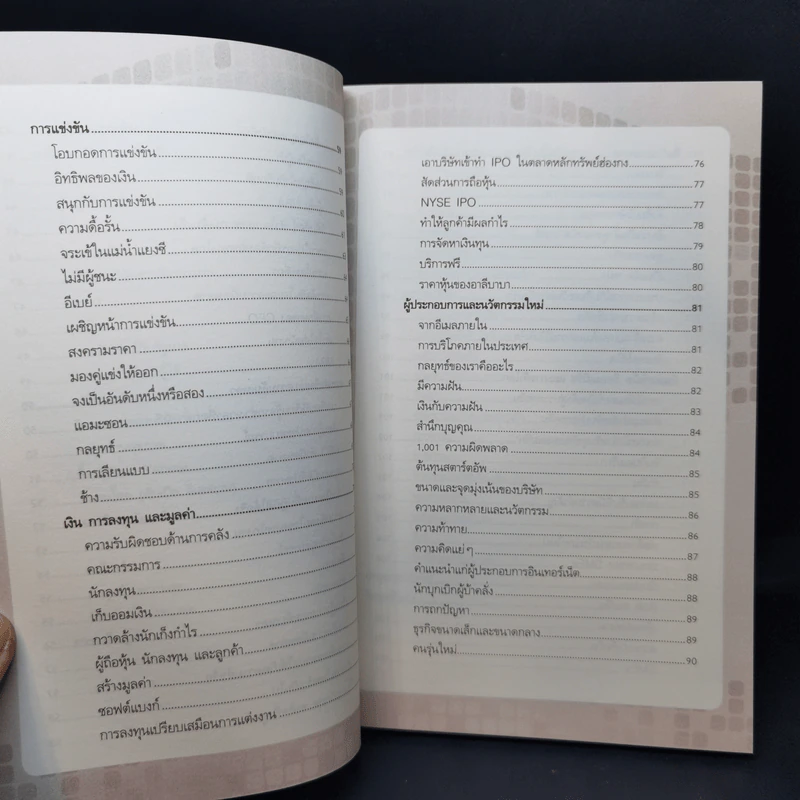 การแข่งขัน
โอบกอดการแข่งขัน
อิทธิพลของเงิน
สนุกกับการแข่งขัน
ความดื้อรั้น
จระเข้ในแม่น้ำแยงซี
ไม่มีผู้ชนะ
อีเบย์
เผชิญหน้าการแข่งขัน
สงครามราคา
มองคู่แข่งให้ออก
จงเป็นอันดับหนึ่งหรือสอง
แอมะซอน
กลยุทธ์
การเลียนแบบ
ช้าง
เงิน การลงทุน และมูลค่า
ความรับผิดชอบด้านการคลัง
คณะกรรมการ
นักลงทุน
เก็บออมเงิน
กวาดล้างนักเก็งกำไร
ผู้ถือหุ้น นักลงทุน และลูกค้า
สร้างมูลค่า
ซอฟต์แบงก์
การลงทุนเปรียบเสมือนการแต่งงาน
เอาบริษัทเข้าทำ IPO ในตลาดหลักทรัพย์ฮ่องกง 76
สัดส่วนการถือหุ้น 77
NYSE IPO 77
ทำให้ลูกค้ามีผลกำไร 78
การจัดหาเงินทุน 79
บริการฟรี 80
ราคาหุ้นของอาลีบาบา 80
ผู้ประกอบการและนวัตกรรมใหม่ 81
จากอีเมลภายใน 81
การบริโภคภายในประเทศ 81
กลยุทธ์ของเราคืออะไร 82
มีความฝัน 82
เงินกับความฝัน 83
สำนึกบุญคุณ 84
1,001 ความผิดพลาด 84
ต้นทุนสตาร์ตอัพ 85
ขนาดและจุดมุ่งเน้นของบริษัท 85
ความหลากหลายและนวัตกรรม 86
ความท้าทาย 86
ความคิดแย่ๆ 87
คำแนะนำแก่ผู้ประกอบการอินเทอร์เน็ต 88
นักบุกเบิกผู้บ้าคลั่ง 88
การถกปัญหา 89
ธุรกิจขนาดเล็กและขนาดกลาง 89
คนรุ่นใหม่ 90